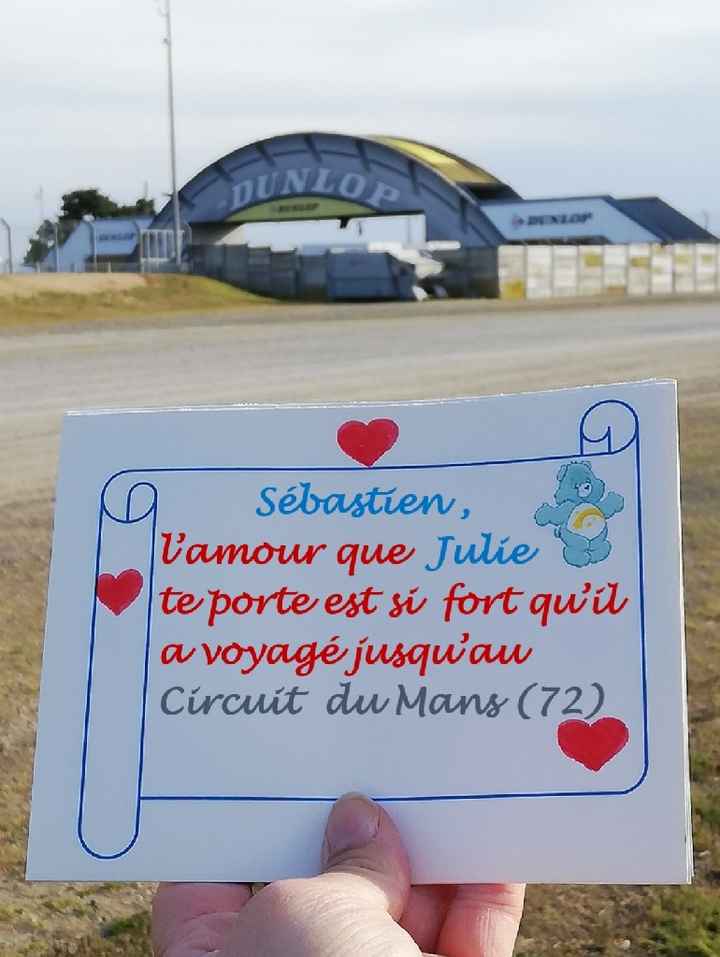 DUNLOP
DUNLOP
DUNLOP
DUNLOP
Sébastien,
l'amour que Julie
te porte est si fort qu'il
a voyagé jusqu'au
Circuit du Mans (72)